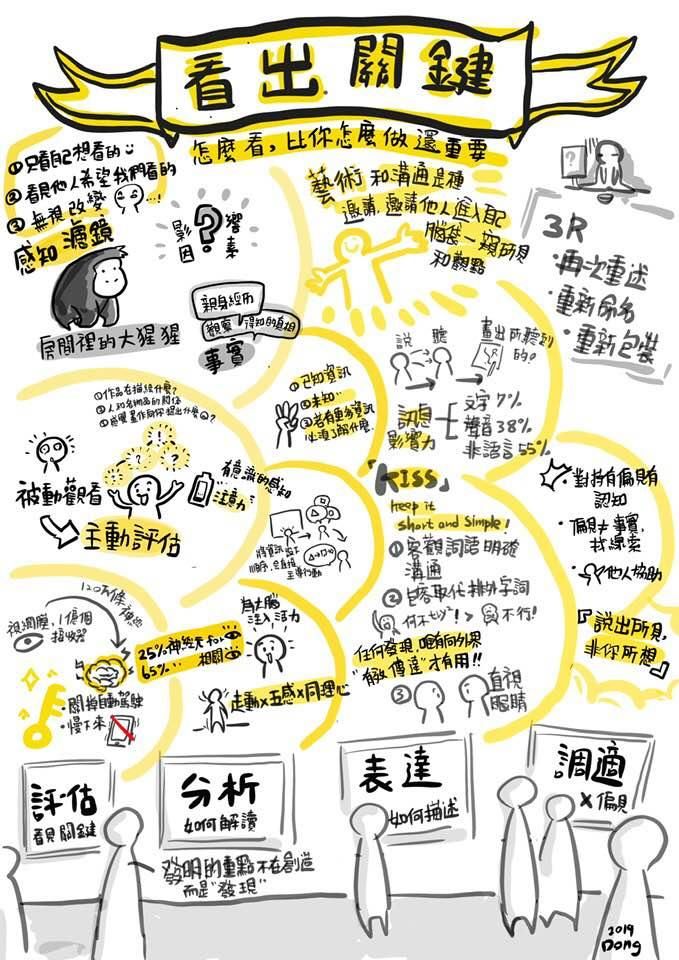 看出關鍵
怎麼看，比你怎麼做還重要
①只看自己想看的
②看見他人希望我們看的
③無視改變
感知濾鏡
影響
因素
?
房間裡的大猩猩
親身經历
觀察、得知的真相
事實
藝術和溝通是種
邀請，邀請他人進入自己
腦袋一窺所見
和觀點
?
3R
・再次重述
・重新命名
・重新包裝
①作品在描繪什麼?
②人和名物品的關係
被動觀看
主動評估
有意識的感知
注意力
①已知資訊
②未知‥
③若有更多資訊
必須了解什麼
說 聽
畫出所聽到
的!
訊息
影響力
文字 7%
聲音 38%
非語言 55%
「KISS」
keep it
short and simple!
①客觀詞語明確
溝通
②包容取代排外字詞
何不 > 不行!
任何發現，唯有向外界
"有效傳達"才有用!!
③ 直視
眼睛
・對持有偏見有
認知
・偏見≠事實，
找線索
・他人協助
『說出所見，
非你所想』
120萬條神經
視網膜，1億個
接收器
25%神經元和
65%‥ 相關
・關掉自動駕駛
・慢下來
為大腦
注入活力
走動×五感×同理心
評估
看見關鍵
分析
如何解讀
表達
如何描述
調適
×偏見
發明的重點不在創造
而是"發現"
2019
Dong